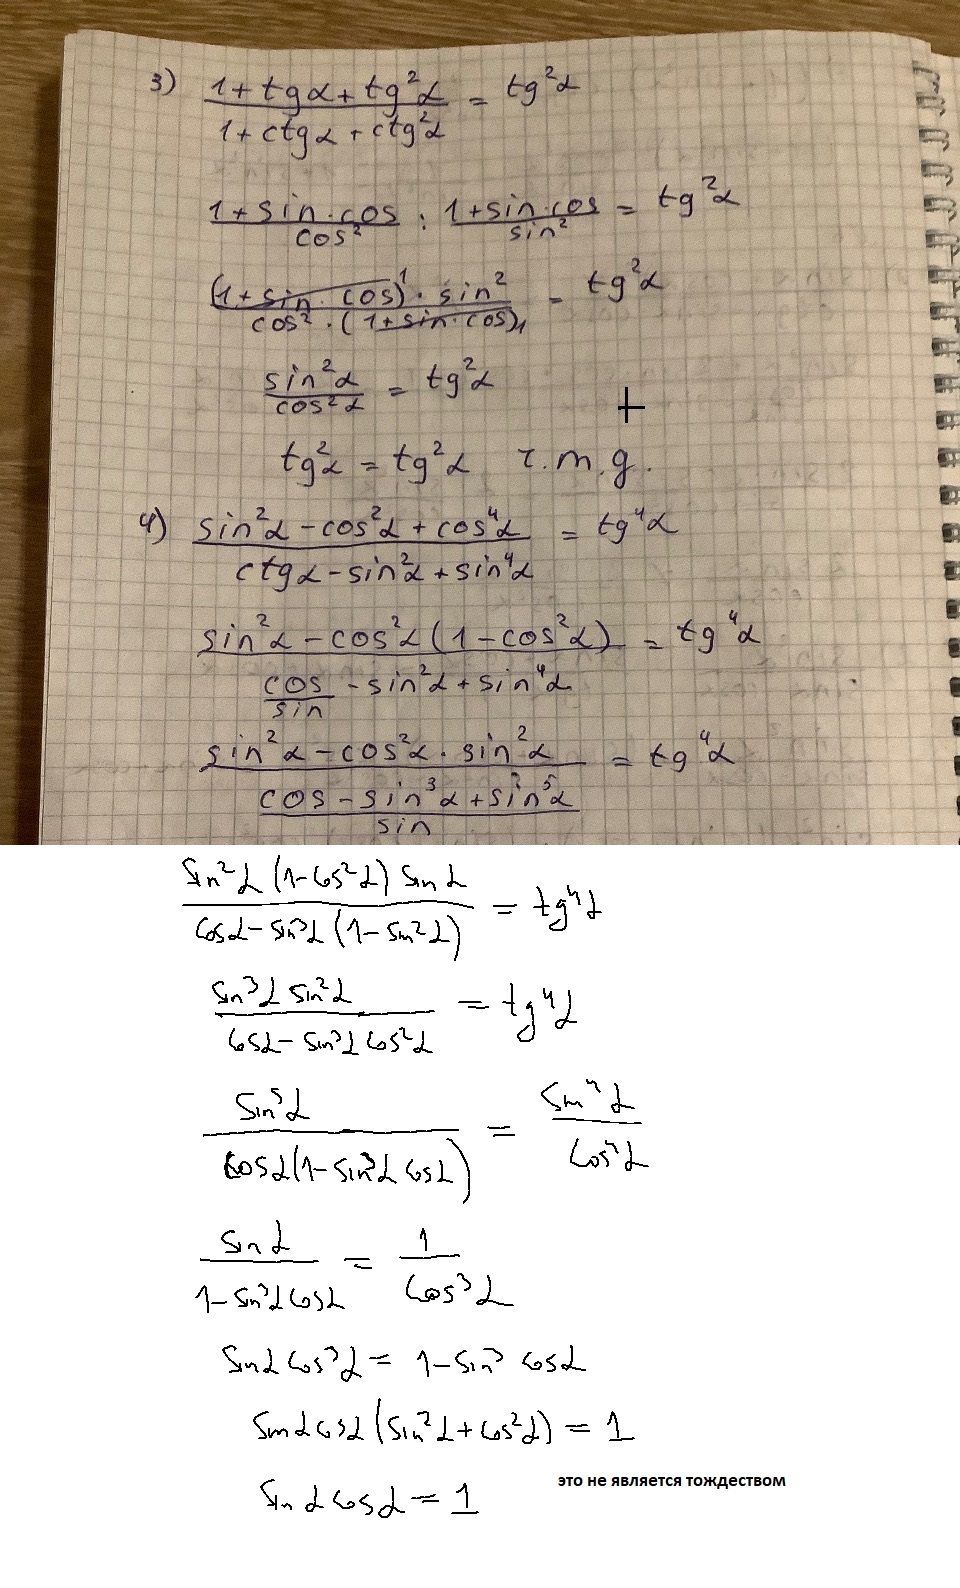 3) (1 + tgα + tg²α)/(1 + ctgα + ctg²α) = tg²α
(1 + sin·cos)/cos² : (1 + sin·cos)/sin² = tg²α
((1 + sin·cos)¹ · sin²)/(cos² · (1 + sin·cos)₁) = tg²α
sin²α/cos²α = tg²α
+
tg²α = tg²α ч.т.д.
4) (sin²α - cos²α + cos⁴α)/(ctgα - sin²α + sin⁴α) = tg⁴α
(sin²α - cos²α(1 - cos²α))/(cos/sin - sin²α + sin⁴α) = tg⁴α
(sin²α - cos²α · sin²α)/((cos - sin³α + sin⁵α)/sin) = tg⁴α
(sin²α (1 - cos²α) sinα)/(cosα - sin³α (1 - sin²α)) = tg⁴α
(sin³α sin²α)/(cosα - sin³α cos²α) = tg⁴α
sin⁵α/(cosα(1 - sin³α cosα)) = sin⁴α/cos⁴α
sinα/(1 - sin³α cosα) = 1/cos³α
sinα cos³α = 1 - sin³ cosα
sinα cosα (sin²α + cos²α) = 1
sinα cosα = 1 это не является тождеством